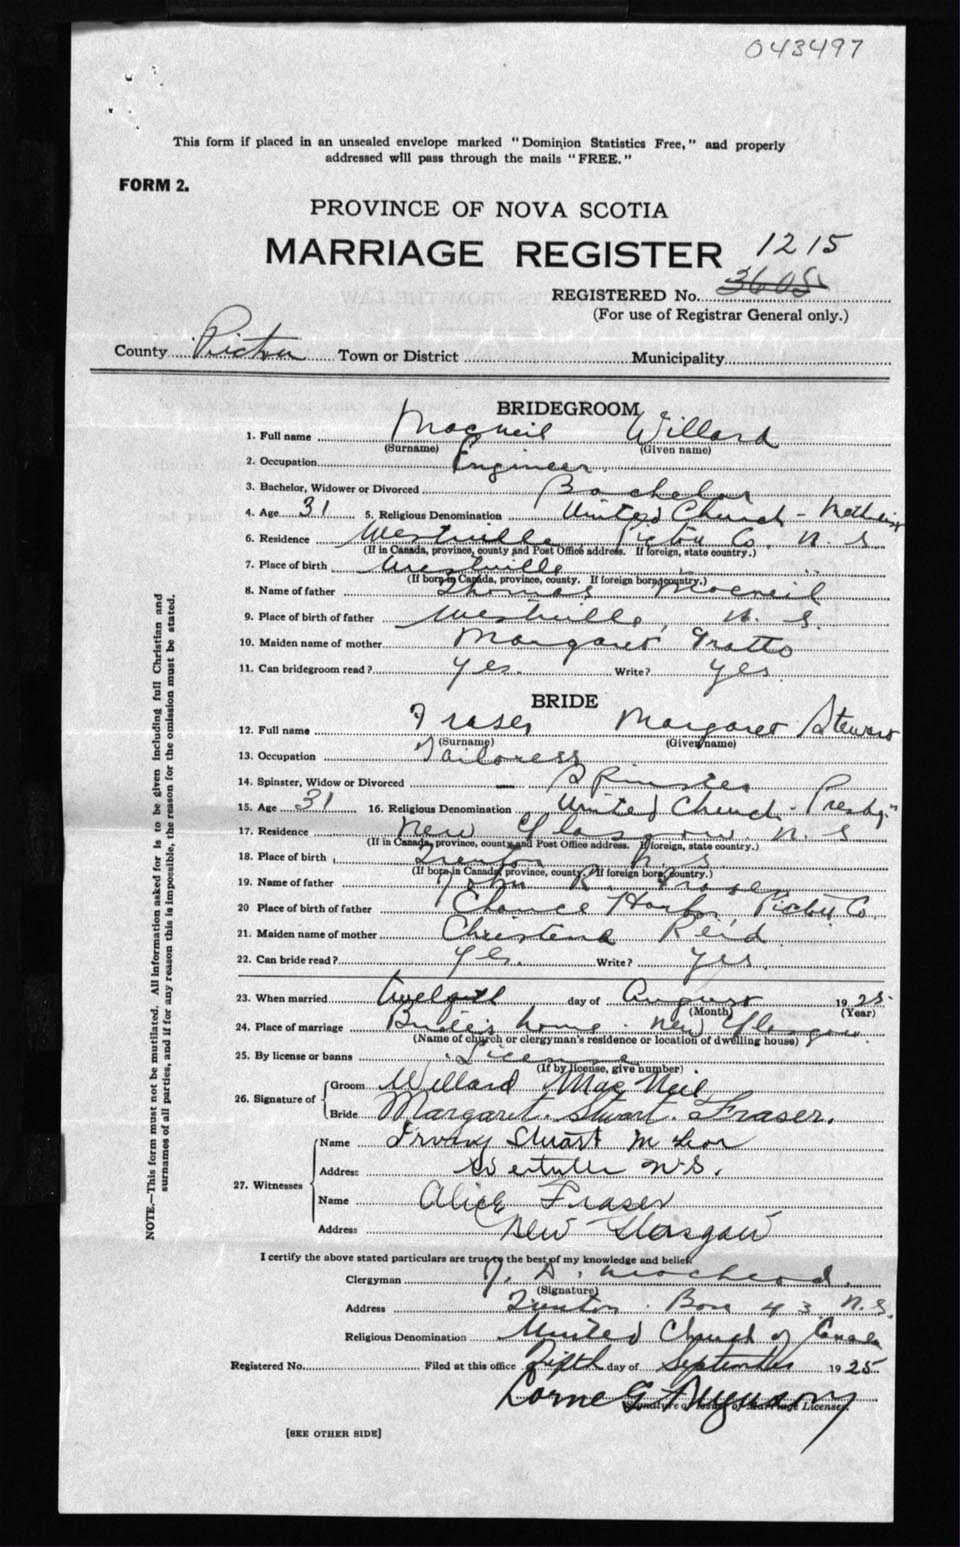 043497
This form if placed in an unsealed envelope marked "Dominion Statistics Free," and properly
addressed will pass through the mails "FREE."
FORM 2.
PROVINCE OF NOVA SCOTIA
MARRIAGE REGISTER 1215
REGISTERED No. 3605
(For use of Registrar General only.)
County Pictou Town or District Municipality
BRIDEGROOM
1. Full name Macneil Willard
(Surname) (Given name)
2. Occupation Engineer
3. Bachelor, Widower or Divorced Bachelor
4. Age 31 5. Religious Denomination United Church -
6. Residence Westville Pictu Co. N. S.
(If in Canada, province, county and Post Office address. If foreign, state country.)
7. Place of birth Westville " "
(If born in Canada, province, county. If foreign born, country.)
8. Name of father Thomas Macneil
9. Place of birth of father Westville, N. S.
10. Maiden name of mother Margaret Fratto
11. Can bridegroom read? yes. Write? yes
BRIDE
12. Full name Fraser Margaret Stewart
(Surname) (Given name)
13. Occupation Tailoress
14. Spinster, Widow or Divorced Spinster
15. Age 31 16. Religious Denomination United Church - Presby"
17. Residence New Glasgow. N. S
(If in Canada, province, county and Post Office address. If foreign, state country.)
18. Place of birth Trenton N. S
(If born in Canada, province, county. If foreign born, country.)
19. Name of father John R. Fraser
20 Place of birth of father Chance Harbor, Pictu Co.
21. Maiden name of mother Christena Reid
22. Can bride read? yes. Write? yes.
23. When married twelfth day of August 1925.
(Month) (Year)
24. Place of marriage Bride's home. New Glasgow
(Name of church or clergyman's residence or location of dwelling house)
25. By license or banns License
(If by license, give number)
26. Signature of Groom Willard MacNeil
Bride Margaret. Stuart. Fraser.
27. Witnesses Name Irving Stuart
Address Westville N.S.
Name Alice Fraser
Address New Glasgow
I certify the above stated particulars are true to the best of my knowledge and belief.
Clergyman
(Signature)
Address Trenton. Box 43 N.S.
Religious Denomination United Church of Canada
Registered No. Filed at this office Fifth day of September 1925
Lorne G Ferguson
(Signature of Issuer of Marriage Licenses)
[SEE OTHER SIDE]
NOTE.—This form must not be mutilated. All information asked for is to be given including full Christian and
surnames of all parties, and if for any reason this is impossible, the reason for the omission must be stated.